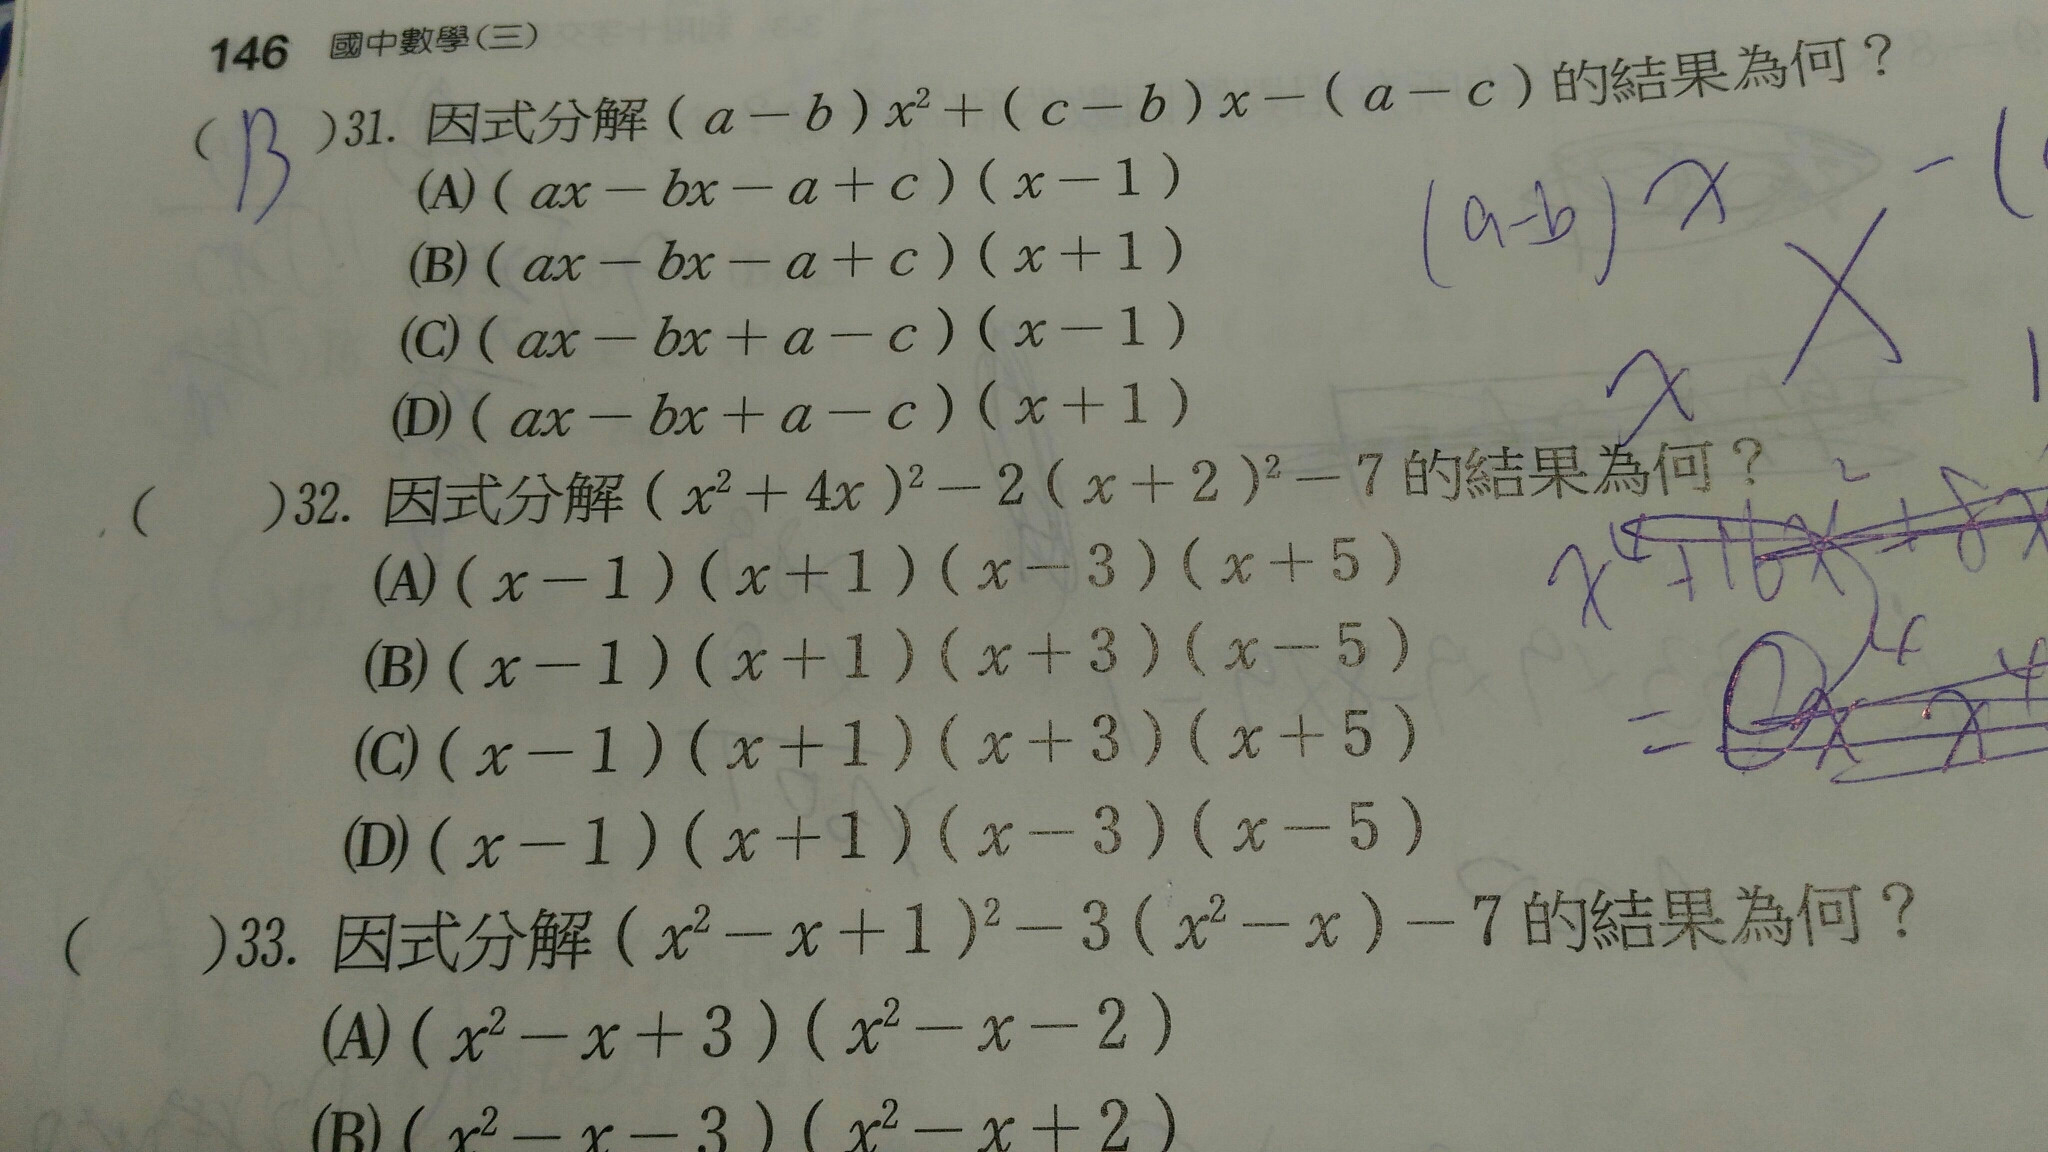 146 國中數學(三)
( B )31. 因式分解(a-b)x²+(c-b)x-(a-c)的結果為何？
(A)(ax-bx-a+c)(x-1)
(B)(ax-bx-a+c)(x+1)
(C)(ax-bx+a-c)(x-1)
(D)(ax-bx+a-c)(x+1)
(a-b) x -(
x 1
( )32. 因式分解(x²+4x)²-2(x+2)²-7的結果為何？
(A)(x-1)(x+1)(x-3)(x+5)
(B)(x-1)(x+1)(x+3)(x-5)
(C)(x-1)(x+1)(x+3)(x+5)
(D)(x-1)(x+1)(x-3)(x-5)
( )33. 因式分解(x²-x+1)²-3(x²-x)-7的結果為何？
(A)(x²-x+3)(x²-x-2)
(B)(x²-x-3)(x²-x+2)